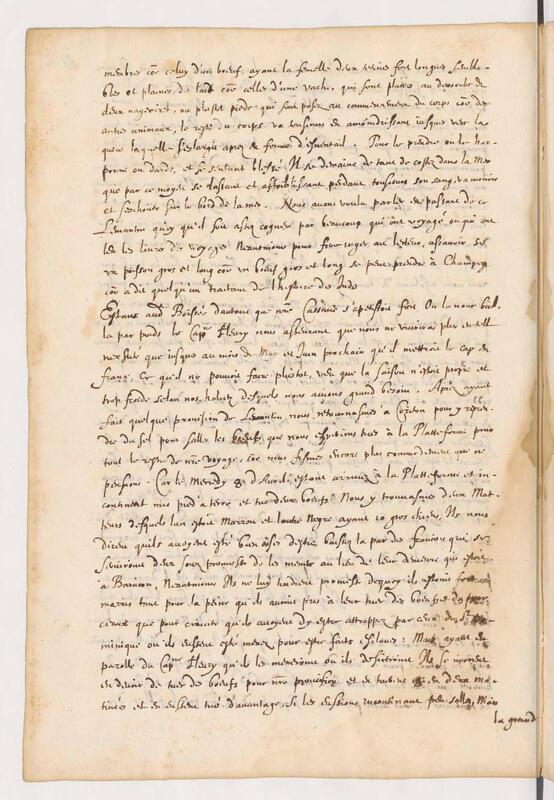 membre côe celuy d'un boeuf, ayant la femelle deux tetins fort longues sembla-
bles et plaines de laict côe celles d'une vache, qui sont placées au dessoubs de
deux nageoires, ou plustost pieds qui sont posez au commencement du corps côe des
autres animaux, le reste du corps va tousjours en amoindrissant jusques vers la
queue laquelle s'eslargit apres en forme d'esventail. Pour le prendre on le har-
ponne ou darde, et se sentant blessé Il se demaine de tant de costez dans la Mer
que par ce moyen se lassant et affoiblissant perdant tousjours son sang, va mourir
et s'eschouer sur le bord de la mer. Nous avons voulu parler en passant de ce
Lemantin quoy qu'il soit assez cogneu par beaucoup qui ont voyagé ou qui ont
leu les livres de voyages Neantmoins pour faire juger au lecteur, assavoir si
un poisson gros et long côe un boeuf gros et long se peut prendre à
côe a dit quelqu'un traitant de l'histoire des Indes
Estans aud Boissé d'autant que nre Cassave s'apetissoit fort On la nous bail-
la par poids le Capne Fleury nous asseurant que nous ne vivrions plus en telle
necessité que jusques au mois de May et Juin prochain qu'il mettroit le cap en
France, Ce qu'il ne pouvoit faire plustost, veu que la saison n'estoit propre et
trop froide selon nos habits desquels nous avions grand besoin. Apres ayant
fait quelque provision de Lemantin nous retournasmes à pour y repren-
dre du sel pour saller les boeufs que nous esperions tuer à la Platteforme pour
tout le reste de nre voyage, côe nous fismes encore plus commodement que ne
pensions. Car le Mercredy 8e d'Avril estant arrivez à la Platteforme et in-
continent mis pied à terre et tué deux boeufs Nous y trouvasmes deux Mat-
teurs desquels l'un estoit Marron et l'autre Negre ayant 10 gros chiens, Ils nous
dirent qu'ils avoyent esté bien aises d'estre baissez là par des françois qui se
servirent deux jours promesse de les mener au lieu de leur demeure qui estoit
à Neantmoins Ils ne luy tindrent promesse dequoy ils estoient fort
marris tant pour la peine qu'ils avoient pris à leur tuer des boeufs et des pour-
ceaux que pour crainte qu'ils avoyent d'y estre attrappez par ceux de St Do-
minique où ils eussent esté menez pour estre faits esclaves: Mais ayant eu
parolle du Capne Fleury qu'ils les meneroient où ils desireroient Ils se mirent
en devoir de tuer des boeufs pour nre provision et en tuerent en deux ma-
tinées et en eussent tué d'avantage, si les eussions incontinant peu saller, Mais
la grand